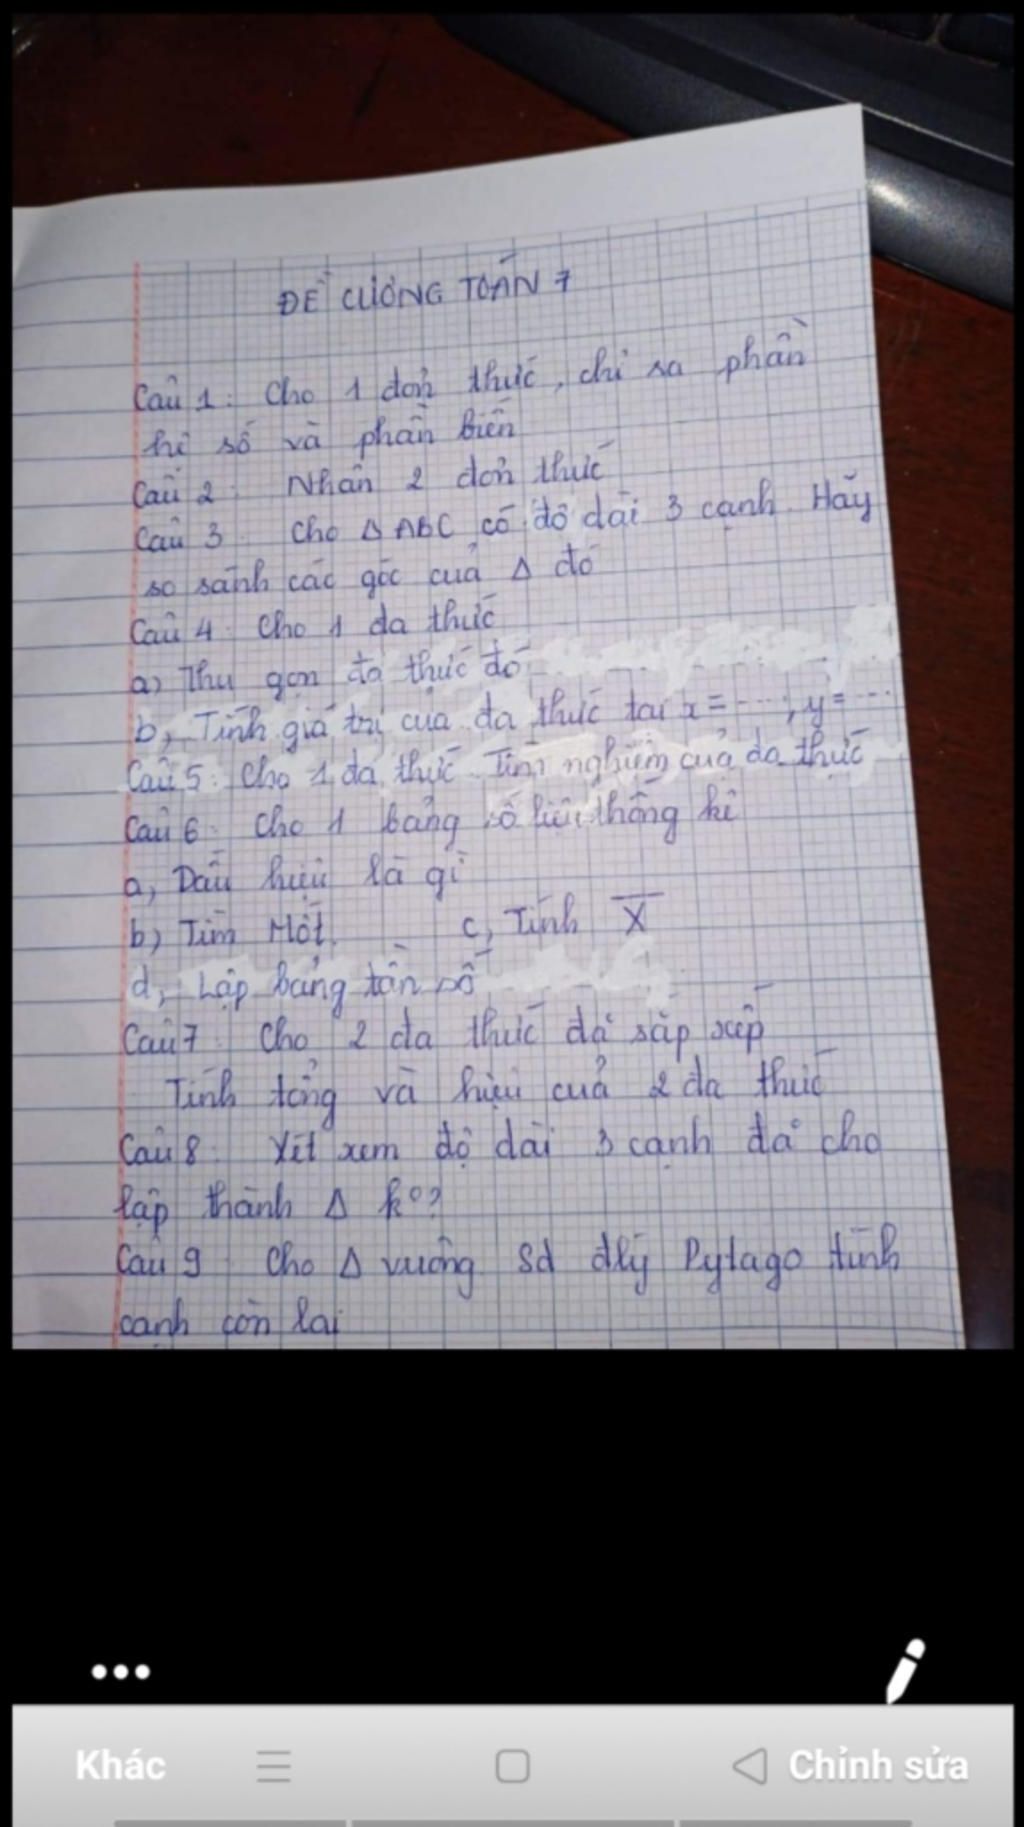 ĐỀ CƯƠNG TOÁN 7
Câu 1: Cho 1 đơn thức, chỉ ra phần
hệ số và phần biến
Câu 2: Nhân 2 đơn thức
Câu 3: Cho Δ ABC có độ dài 3 cạnh. Hãy
so sánh các góc của Δ đó
Câu 4: Cho 1 đa thức
a) Thu gọn đa thức đó
b, Tính giá trị của đa thức tại x = ...; y = ...
Câu 5: Cho 1 đa thức. Tìm nghiệm của đa thức
Câu 6: Cho 1 bảng số liệu thống kê
a, Dấu hiệu là gì
b) Tìm Mốt. c, Tính X̅
d, Lập bảng tần số
Câu 7: Cho 2 đa thức đã sắp xếp
Tính tổng và hiệu của 2 đa thức
Câu 8: Xét xem độ dài 3 cạnh đã cho
lập thành Δ k°?
Câu 9: Cho Δ vuông sd đlý Pytago tính
cạnh còn lại
Khác
Chỉnh sửa